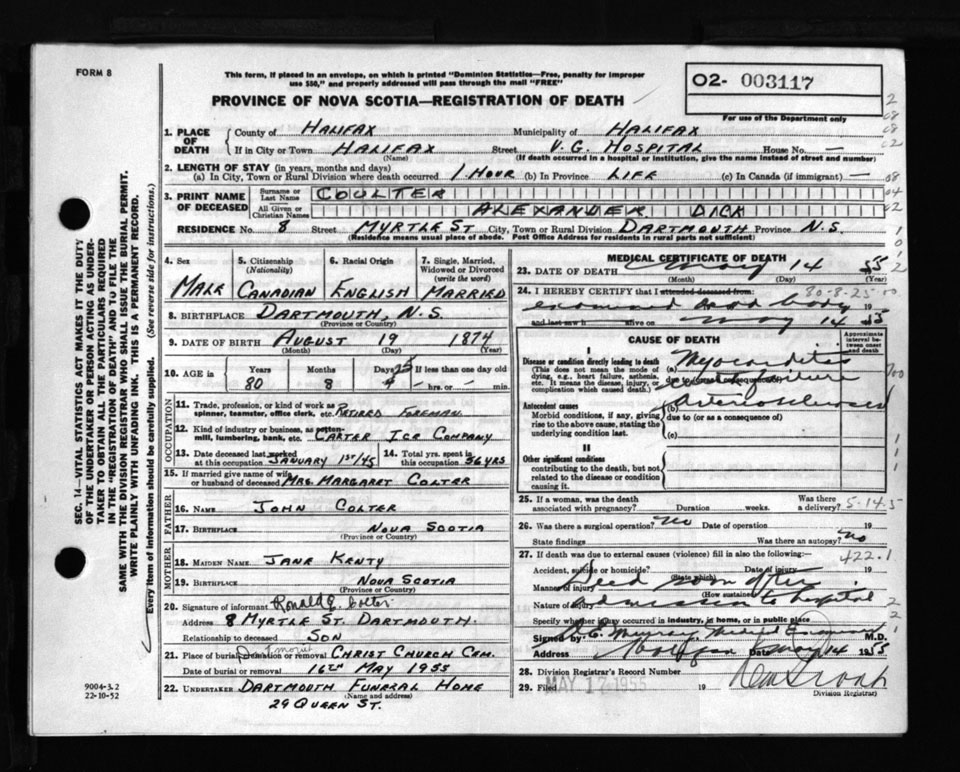 FORM 8
This form, if placed in an envelope, on which is printed "Dominion Statistics—Free, penalty for improper
use $50," and properly addressed will pass through the mail "FREE"
PROVINCE OF NOVA SCOTIA—REGISTRATION OF DEATH
O2- 003117
For use of the Department only
1. PLACE OF DEATH { County of HALIFAX Municipality of HALIFAX
If in City or Town HALIFAX Street V. G. HOSPITAL House No. —
(Name) (If death occurred in a hospital or institution, give the name instead of street and number)
2. LENGTH OF STAY (in years, months and days)
(a) In City, Town or Rural Division where death occurred 1 HOUR (b) In Province LIFE (c) In Canada (if immigrant) —
3. PRINT NAME OF DECEASED { Surname or Last Name COULTER
All Given or Christian Names ALEXANDER DICK
RESIDENCE No. 8 Street MYRTLE ST City, Town or Rural Division DARTMOUTH Province N.S.
(Residence means usual place of abode. Post Office Address for residents in rural parts not sufficient)
4. Sex
MALE
5. Citizenship
(Nationality)
CANADIAN
6. Racial Origin
ENGLISH
7. Single, Married,
Widowed or Divorced
(write the word)
MARRIED
8. BIRTHPLACE DARTMOUTH, N.S.
(Province or Country)
9. DATE OF BIRTH AUGUST 19 1874
(Month) (Day) (Year)
10. AGE in { Years Months Days If less than one day old
80 8 25 — hrs. or — min.
OCCUPATION
11. Trade, profession, or kind of work as
spinner, teamster, office clerk, etc. RETIRED FOREMAN
12. Kind of industry or business, as cotton-
mill, lumbering, bank, etc. CARTER ICE COMPANY
13. Date deceased last worked
at this occupation JANUARY 1ST/45
14. Total yrs. spent in
this occupation 56 YRS
15. If married give name of wife
or husband of deceased MRS MARGARET COLTER
FATHER
16. NAME JOHN COLTER
17. BIRTHPLACE NOVA SCOTIA
(Province or Country)
MOTHER
18. MAIDEN NAME JANE KENTY
19. BIRTHPLACE NOVA SCOTIA
(Province or Country)
20. Signature of informant Ronald E. Colter
Address 8 MYRTLE ST. DARTMOUTH.
Relationship to deceased SON
21. Place of burial, cremation or removal CHRIST CHURCH CEM.
Date of burial or removal 16TH MAY 1955
22. UNDERTAKER DARTMOUTH FUNERAL HOME
(Name and address)
29 QUEEN ST.
MEDICAL CERTIFICATE OF DEATH
23. DATE OF DEATH May 14 1955
(Month) (Day) (Year)
80-8-25-00
24. I HEREBY CERTIFY that I attended deceased from:
examined dead body 19
and last saw h alive on May 14 1955
CAUSE OF DEATH
Approximate
interval be-
tween onset
and death
I
Disease or condition directly leading to death
(This does not mean the mode of
dying, e.g., heart failure, asthenia,
etc. It means the disease, injury, or
complication which caused death.)
(a) Myocarditis
due to (or as a consequence of)
failure
Antecedent causes
Morbid conditions, if any, giving
rise to the above cause, stating the
underlying condition last.
(b) Arteriosclerosis
due to (or as a consequence of)
(c)
II
Other significant conditions
contributing to the death, but not
related to the disease or condition
causing it.
25. If a woman, was the death
associated with pregnancy? Duration weeks. Was there
a delivery?
5-14-5
26. Was there a surgical operation? No Date of operation 19
State findings Was there an autopsy? No
27. If death was due to external causes (violence) fill in also the following:—
422.1
Accident, suicide or homicide? Date of injury 19
(State which)
Manner of injury Died soon after
(How sustained)
Nature of injury admission to hospital
Specify where injury occurred in industry, in home, or in public place
Signed by E. Murray, Medical Examiner M.D.
Address Halifax Date May 14 1955
28. Division Registrar's Record Number
29. Filed MAY 17 1955 19
Division Registrar
SEC. 14—VITAL STATISTICS ACT MAKES IT THE DUTY
OF THE UNDERTAKER OR PERSON ACTING AS UNDER-
TAKER TO OBTAIN ALL THE PARTICULARS REQUIRED
IN THE "REGISTRATION OF DEATH" AND TO FILE THE
SAME WITH THE DIVISION REGISTRAR WHO SHALL ISSUE THE BURIAL PERMIT.
WRITE PLAINLY WITH UNFADING INK. THIS IS A PERMANENT RECORD.
Every item of information should be carefully supplied. (See reverse side for instructions.)
9004-3.2
22-10-52